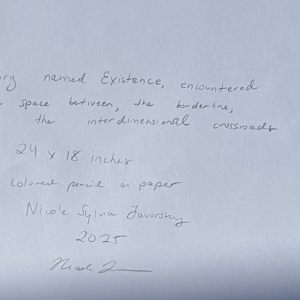 named Existence, encountered
space between, the borderline,
the interdimensional crossroads
24 x 18 inches
Colored pencil on paper
Nicole Sylvia Javorsky
2025